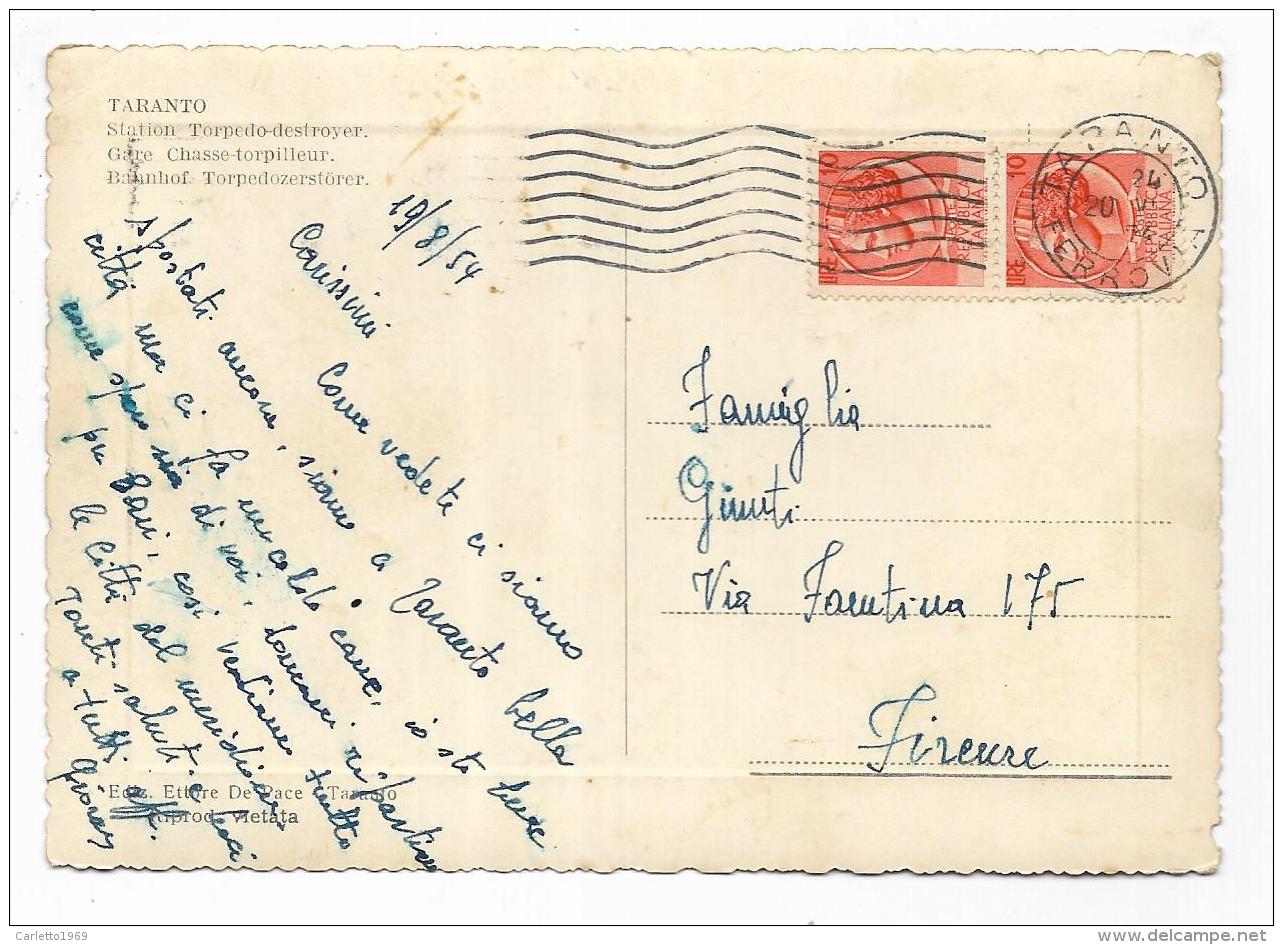 TARANTO
Station Torpedo-destroyer.
Gare Chasse-torpilleur.
Bahnhof Torpedozerstörer.
19/8/54
Carissimi
Come vedete ci siamo
spostati ancora, siamo a Taranto bella
città ma ci fa un caldo cane, io sto bene
come spero sia di voi, domani ripartiamo
per Bari, così vediamo tutte
le città del meridione.
Tanti saluti e baci
a tutti aff.
Ediz. Ettore De Pace - Taranto
Riprod. vietata
LIRE 10
REPUBBLICA
ITALIANA
LIRE 10
REPUBBLICA
ITALIANA
TARANTO
FERROVIA
20
24
Famiglia
Giunti
Via Faentina 175
Firenze
Carletto1969
delcampe.net